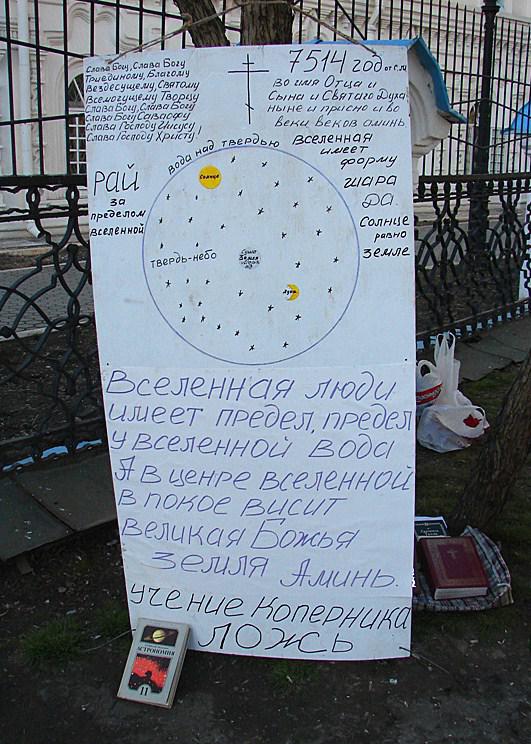 Слава Богу, Слава Богу
Триединому, Благому
Вездесущему, Святому
Всемогущему Творцу
Слава Богу, Слава Богу
Слава Богу Саваофу
Слава Господу Иисусу
Слава Господу Христу!
7514 год от С.М
во имя Отца и
Сына и Святаго Духа
ныне и присно и во
веки веков аминь
вода над твердью
Вселенная
имеет
форму
шара
Да.
Солнце
равно
Земле
РАЙ
за
пределом
вселенной
Солнце
твердь-небо
Земля
Луна
Вселенная люди
имеет предел, предел
у вселенной вода
А в ценре вселенной
в покое висит
великая Божья
Земля Аминь.
учение Коперника
ЛОЖЬ
АСТРОНОМИЯ
11